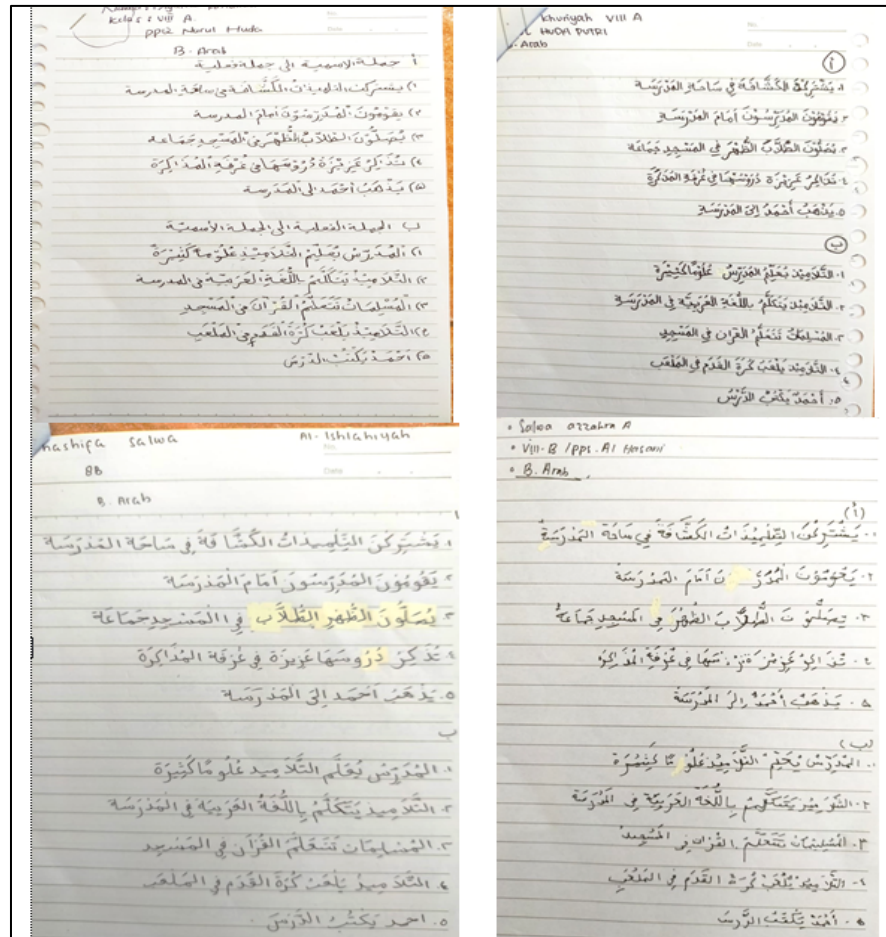 Kelas : VIII A.
PPQ Nurul Huda
B. Arab
أ جملة الاسمية الى جملة فعلية
١) يشتركت التلميذات الكَشَّافة في ساحة المدرسة
٢) يقومون المُدَرِّسُوْنَ أمام المدرسة
٣) يُصَلُّوْنَ الطُّلَّابُ الظُّهْرَ فى المَسْجِدِ جَمَاعة
٤) تُذَاكِرُ عَزِيْزَةُ دُرُوْسَهَا فِي غُرْفَةِ الْمُذَاكَرَة
٥) يَذْهَبُ أحْمَدُ إلى المَدْرسة
ب الجملة الفعلية الى الجملة الأسمية
١) المُدَرِّسُ يُعَلِّمُ التَّلَامِيْذَ عُلُوْمًا كَثِيْرَةً
٢) التَّلَامِيذُ يَتَكَلَّمُ بِاللُّغَةِ العَرَبِيَّة فى المدرسة
٣) المُسْلِمَاتُ تَتَعَلَّمُ القُرْآن فى المَسْجِد
٤) التَّلَامِيْذُ يَلْعَبُ كُرَةَ القَدَمِ فى المَلْعَب
٥) أحْمَدُ يَكْتُبُ الدَّرْسَ
Khuriyah VIII A
HUDA PUTRI
Arab
أ
١. يَشْتَرِكْنَ الكَشَّافَةَ فِي سَاحَةِ المَدْرَسَة
٢. يَقُوْمُوْنَ المُدَرِّسُوْنَ أَمَامَ المَدْرَسَة
٣. يُصَلُّوْنَ الطُّلَّابُ الظُّهْرَ فِي المَسْجِدِ جَمَاعَةً
٤. تُذَاكِرُ عَزِيْزَة دُرُوْسَهَا فِي غُرْفَةِ المُذَاكَرَةِ
٥. يَذْهَبُ أَحْمَدُ إِلَى المَدْرَسَةِ
ب
١. التَّلَامِيْذ يُعَلِّمُ المُدَرِّسُ عُلُوْمًا كَثِيْرَةً
٢. التَّلَامِيْذ يَتَكَلَّمُ بِاللُّغَةِ العَرَبِيَّةِ فِي المَدْرَسَةِ
٣. المُسْلِمَاتُ تَتَعَلَّمُ القُرْآن فِي المَسْجِدِ
٤. التَّلَامِيْذ يَلْعَبُ كُرَةَ القَدَمِ فِي المَلْعَب
٥. أَحْمَدُ يَكْتُبُ الدَّرْسَ
hashifa salwa Al-Ishlahiyah
8B
B. Arab
١. يَشْتَرِكْنَ التِّلْمِيذَات الكَشَّافَةَ فِي سَاحَة المَدْرَسَة
٢. يَقُوْمُوْنَ المُدَرِّسُوْنَ أَمَامَ المَدْرَسَة
٣. يُصَلُّوْنَ الظُّهْرِ الطُّلَّاب فِي المَسْجِدِ جَمَاعَة
٤. تُذَكِرُ دُرُوسَهَا عَزِيزَة فِي غُرْفَة المُذَاكَرَة
٥. يَذْهَبُ أَحْمَد إِلَى المَدْرَسَة
ب
١. المُدَرِّس يُعَلِّم التَّلَامِيذ عُلُومًا كَثِيْرَة
٢. التَّلَامِيذ يَتَكَلَّمُ بِاللُّغَةُ العَرَبِيَة فِي المَدْرَسَة
٣. المُسْلِمَات تَتَعَلَّمُ القُرْآن فِي المَسْجِد
٤. التَّلَامِيذُ يَلْعَبُ كُرَةَ القَدَم فِي المَلْعَب
٥. احمد يَكْتُبُ الدَّرْسَ
• Salwa azzahra A
• VIII-B / PPS. Al Hasani
• B. Arab
(أ)
١. يَشْتَرِكْنَ التِّلْمِيْذَات الكَشَّافَةَ فِي سَاحَة المَدْرَسَةِ
٢. يَقُوْمُوْنَ أَمَامَ المَدْرَسَة
٣. الطُّلَّابَ الظُّهْرَ فِي المَسْجِدِ جَمَاعَة
٤. تُذَاكِرُ فِي غُرْفَةِ المُذَاكَرَة
٥. يَذْهَبُ أَحْمَدُ إِلَى المَدْرَسَةُ
(ب)
١. المُدَرِّسُ يُعَلِّمُ التَّلَامِيْذَ عُلُوْمًا كَثِيْرَة
٢. يَتَكَلَّمُ بِاللُّغَةُ العَرَبِيَّة فِي المَدْرَسَة
٣. المُسْلِمَات تَتَعَلَّمُ القُرْآن فِي المَسْجِدُ
٤. التَّلَامِيْذُ يَلْعَبُ كُرَة القَدَم فِي المَلْعَبِ
أَحْمَدُ يَكْتُبُ الدَّرْسَ